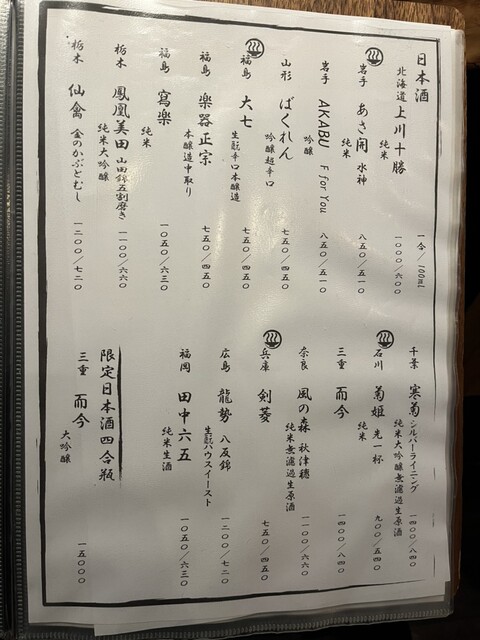 日本酒
一合/100ml
北海道 上川十勝 純米 一〇〇〇/六〇〇
岩手 あさ開 水神 純米 八五〇/五一〇
岩手 AKABU F for You 吟醸 八五〇/五一〇
山形 ばくれん 吟醸超辛口 七五〇/四五〇
福島 大七 生酛辛口本醸造 七五〇/四五〇
福島 楽器正宗 本醸造中取り 七五〇/四五〇
福島 寫楽 純米 一〇五〇/六三〇
栃木 鳳凰美田 山田錦五割磨き 純米大吟醸 一一〇〇/六六〇
栃木 仙禽 金のかぶとむし 一二〇〇/七二〇
千葉 寒菊 シルバーライニング 純米大吟醸無濾過生原酒 一四〇〇/八四〇
石川 菊姫 先一杯 純米 九〇〇/五四〇
三重 而今 一四〇〇/八四〇
奈良 風の森 秋津穂 純米無濾過生原酒 一一〇〇/六六〇
兵庫 剣菱 七五〇/四五〇
広島 龍勢 八反錦 生酛ハウスイースト 一二〇〇/七二〇
福岡 田中六五 純米生酒 一〇五〇/六三〇
限定日本酒四合瓶
三重 而今 大吟醸 一五〇〇〇